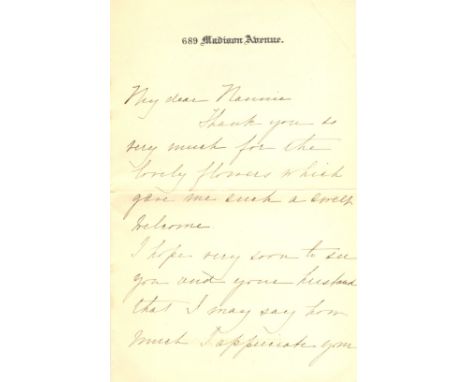 689 Madison Avenue.
My dear Nannie
Thank you so
very much for the
lovely flowers which
gave me such a sweet
welcome
I hope very soon to see
you and your husband
that I may say how
much I appreciate your